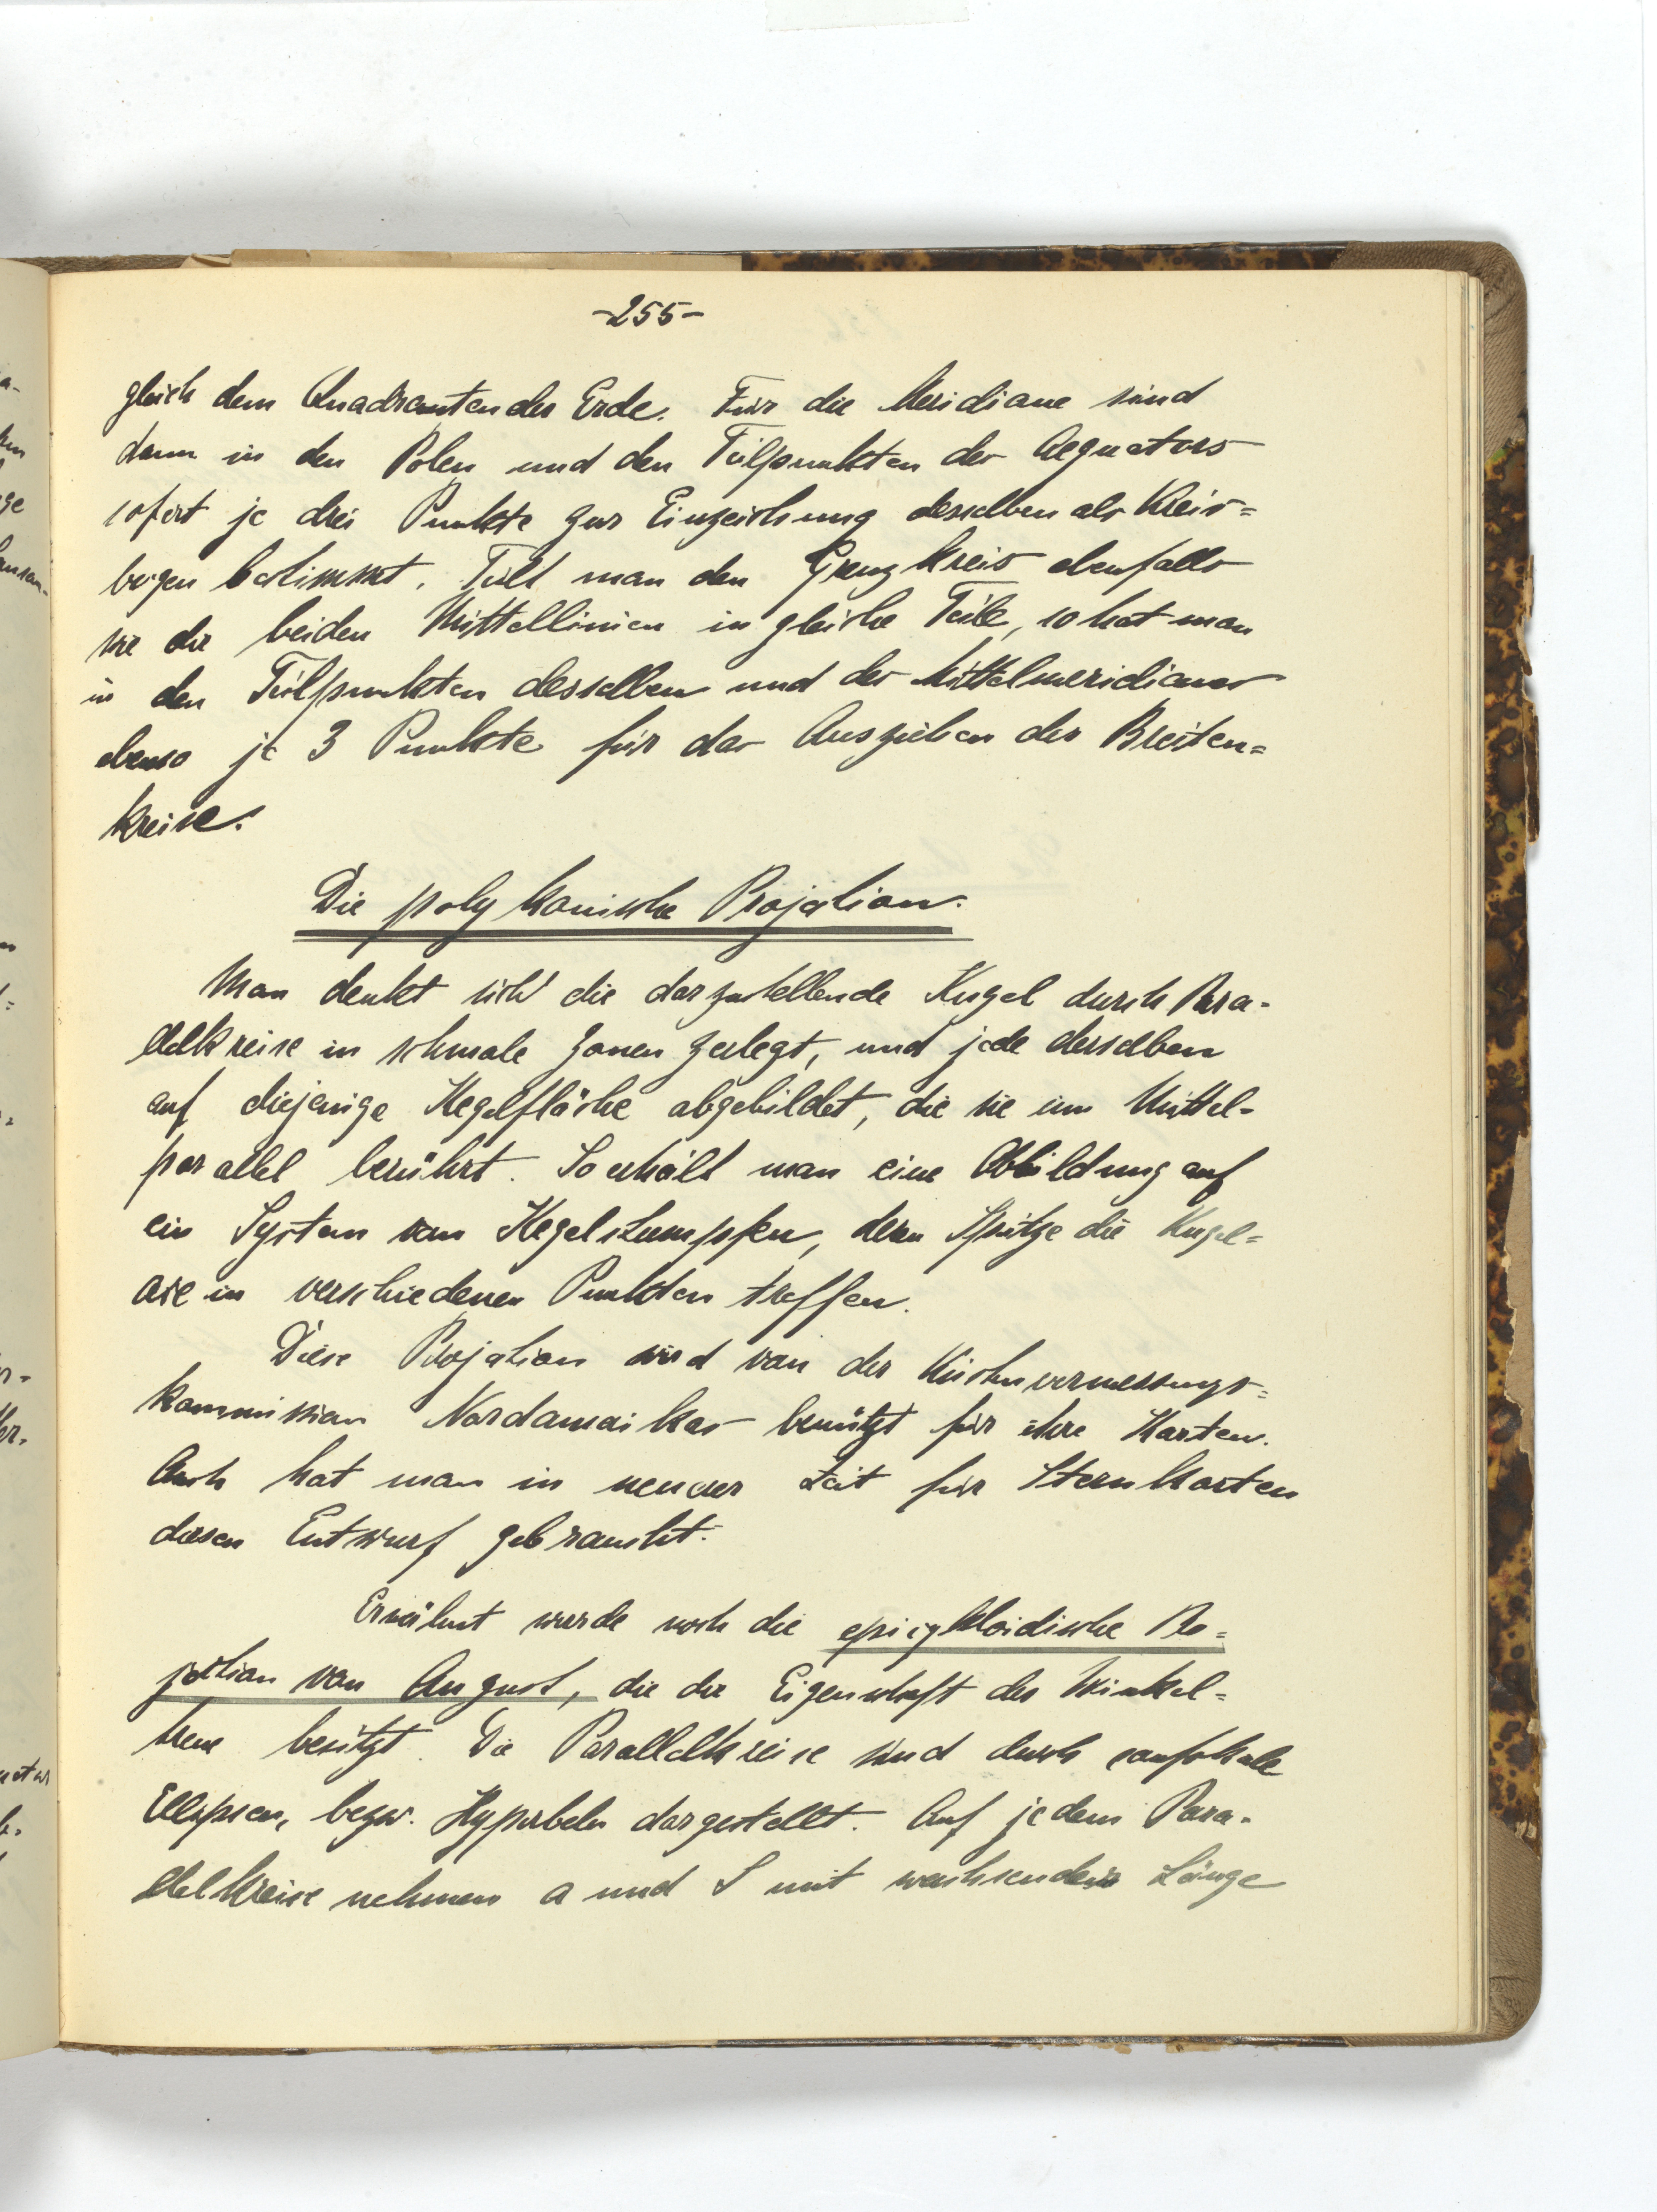 -255-
gleich dem Quadranten der Erde. Für die Meridiane sind
dann in den Polen und den Teilpunkten des Aequators
sofort je drei Punkte zur Einzeichnung desselben als Kreis=
bogen bestimmt. Teilt man den Grenzkreis ebenfalls
wie die beiden Mittellinien in gleiche Teile, so hat man
in den Teilpunkten desselben und des Mittelmeridianes
ebenso je 3 Punkte für das Ausziehen der Breiten=
kreise.
Die polykonische Projektion.
Man denkt sich die darzustellende Kugel durch Para-
llelkreise in schmale Zonen zerlegt, und jede derselben
auf diejenige Kegelfläche abgebildet, die sie im Mittel-
parallel berührt. So erhält man eine Abbildung auf
ein System von Kegelstumpfen, deren Spitze die Kugel=
axe in verschiedenen Punkten treffen.
Diese Projektion wird von der Küstenvermessungs=
kommission Nordamerikas benützt für ihre Karten.
Auch hat man in neuerer Zeit für Sternkarten
diesen Entwurf gebraucht.
Erwähnt werde noch die epicykloidische Pro=
jektion von August, die die Eigenschaft der Winkel=
treue besitzt. Die Parallelkreise sind durch confokale
Ellipsen, bezw. Hyperbeln dargestellt. Auf jedem Para-
llelkreise nehmen a und S mit wachsender Länge